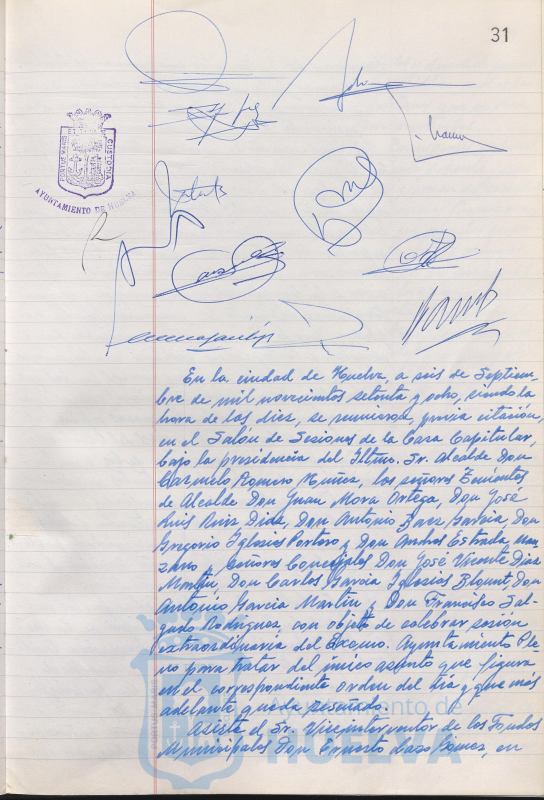 31
PORTUS MARIS ET TERRAE CUSTODIA
AYUNTAMIENTO DE HUELVA
En la ciudad de Huelva, a seis de Septiem-
bre de mil novecientos setenta y ocho, siendo la
hora de las diez, se reunieron, previa citación,
en el Salón de Sesiones de la Casa Capitular,
bajo la presidencia del Iltmo. Sr. Alcalde Don
Carmelo Romero Núñez, los señores Tenientes
de Alcalde Don Juan Mora Ortega, Don José
Luis Ruiz Díaz, Don Antonio Baez García, Don
Gregorio Iglesias Portero y Don Andrés Estrada, Man
zano y señores Concejales Don José Vicente Díaz
Martín, Don Carlos García Iglesias Blount, Don
Antonio García Martín y Don Francisco Sal-
gado Rodríguez con objeto de celebrar sesión
extraordinaria del Excmo. Ayuntamiento Ple
no para tratar del único asunto que figura
en el correspondiente orden del día y que más
adelante queda reseñado.
Asiste el Sr. Viceinterventor de los Fondos
Municipales Don Ernesto Gómez, en
Ayuntamiento de
HUELVA